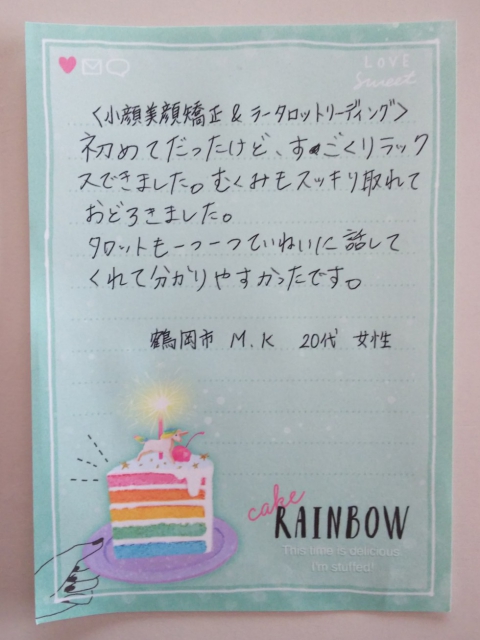 LOVE
Sweet
〈小顔美顔矯正&ラータロットリーディング〉
初めてだったけど、すごくリラック
スできました。むくみもスッキリ取れて
おどろきました。
タロットも一つ一つていねいに話して
くれて分かりやすかったです。
鶴岡市 M.K 20代 女性
cake
RAINBOW
This time is delicious.
I'm stuffed!